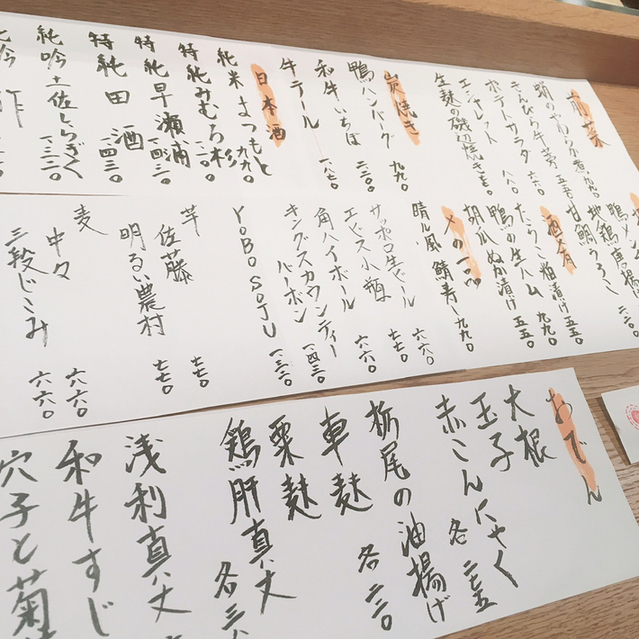 前菜
蛸のやわらか煮 六六〇
きんぴら牛蒡 五五〇
ポテトサラダ 八八〇
エシャレット
生麩の磯辺焼き
炭焼き
鴨ハンバーグ 九九〇
和牛いちぼ
牛テール 一八七〇
日本酒
純米まつもと 九九〇
特純みむろ杉
特純早瀬浦
特純田酒 一四三〇
純吟土佐しらぎく 一三二〇
地鶏
甘鯛うろこ
酒肴
たらこ粕漬け 五五〇
鴨の生ハム 九九〇
胡瓜ぬか漬け
〆の一品
鯖寿し 九九〇
晴れ風 六六〇
サッポロ生ビール 七七〇
エビス小瓶 六六〇
角ハイボール 六六〇
キングスカウンティーバーボン 一四三〇
YOBO SOJU 一三二〇
芋
佐藤 七七〇
明るい農村 七七〇
麦
中々 六六〇
三段じこみ 六六〇
おでん
大根
玉子
赤こんにゃく 各 二七五
栃尾の油揚げ
車麩 各 二二〇
粟麩
鶏肝真丈 各 三
浅利真丈
和牛すじ
穴子と菊